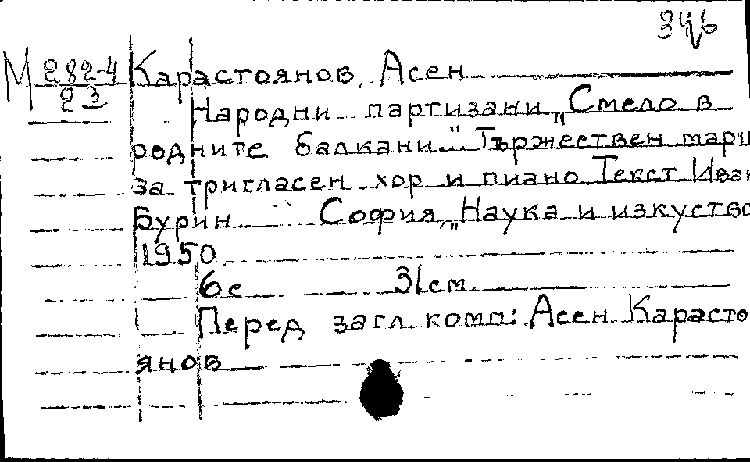 М 282-4 Карастоянов, Асен
23 Народни партизани „Смело в
родните балкани." Тържествен марш
за тригласен хор и пиано Текст Иван
Бурин София, „Наука и изкуство
1950
6 с 31 см
Перед загл. комп: Асен Карасто
янов